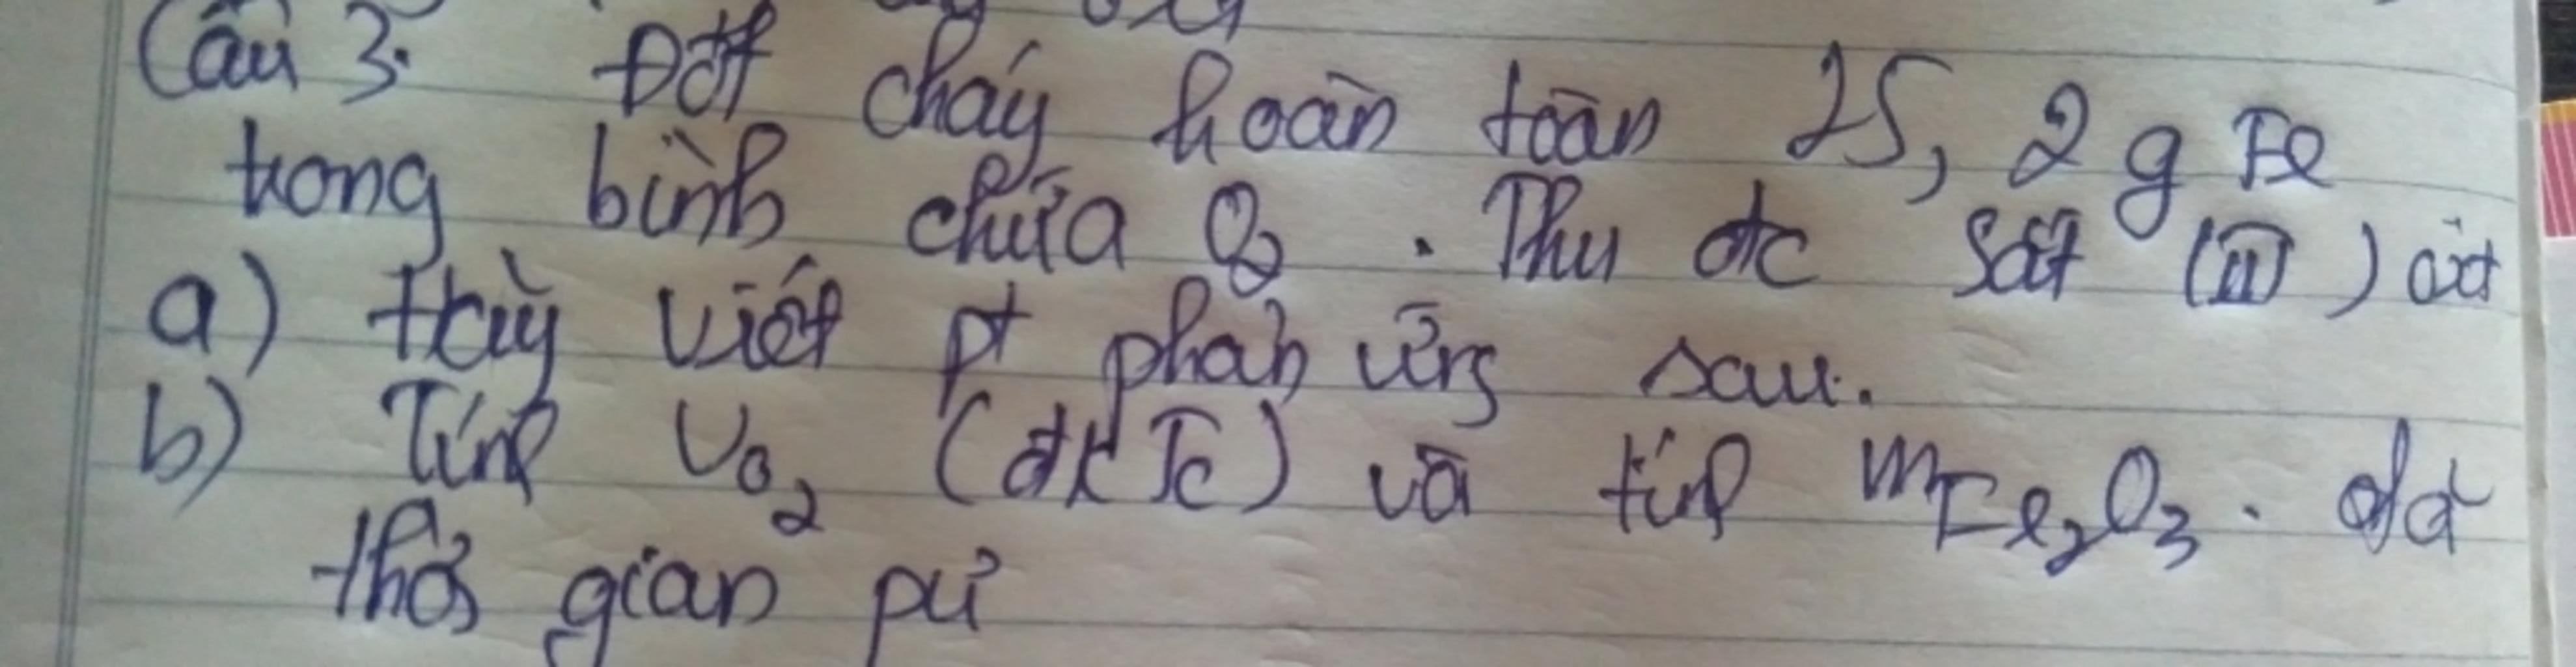 Câu 3. Đốt cháy hoàn toàn 25,2 g Fe
trong bình chứa O2. Thu đc sắt (III) oxit
a) Hãy viết pt phản ứng sau.
b) Tính VO2 (đktc) và tính mFe2O3. đã
thời gian pứ